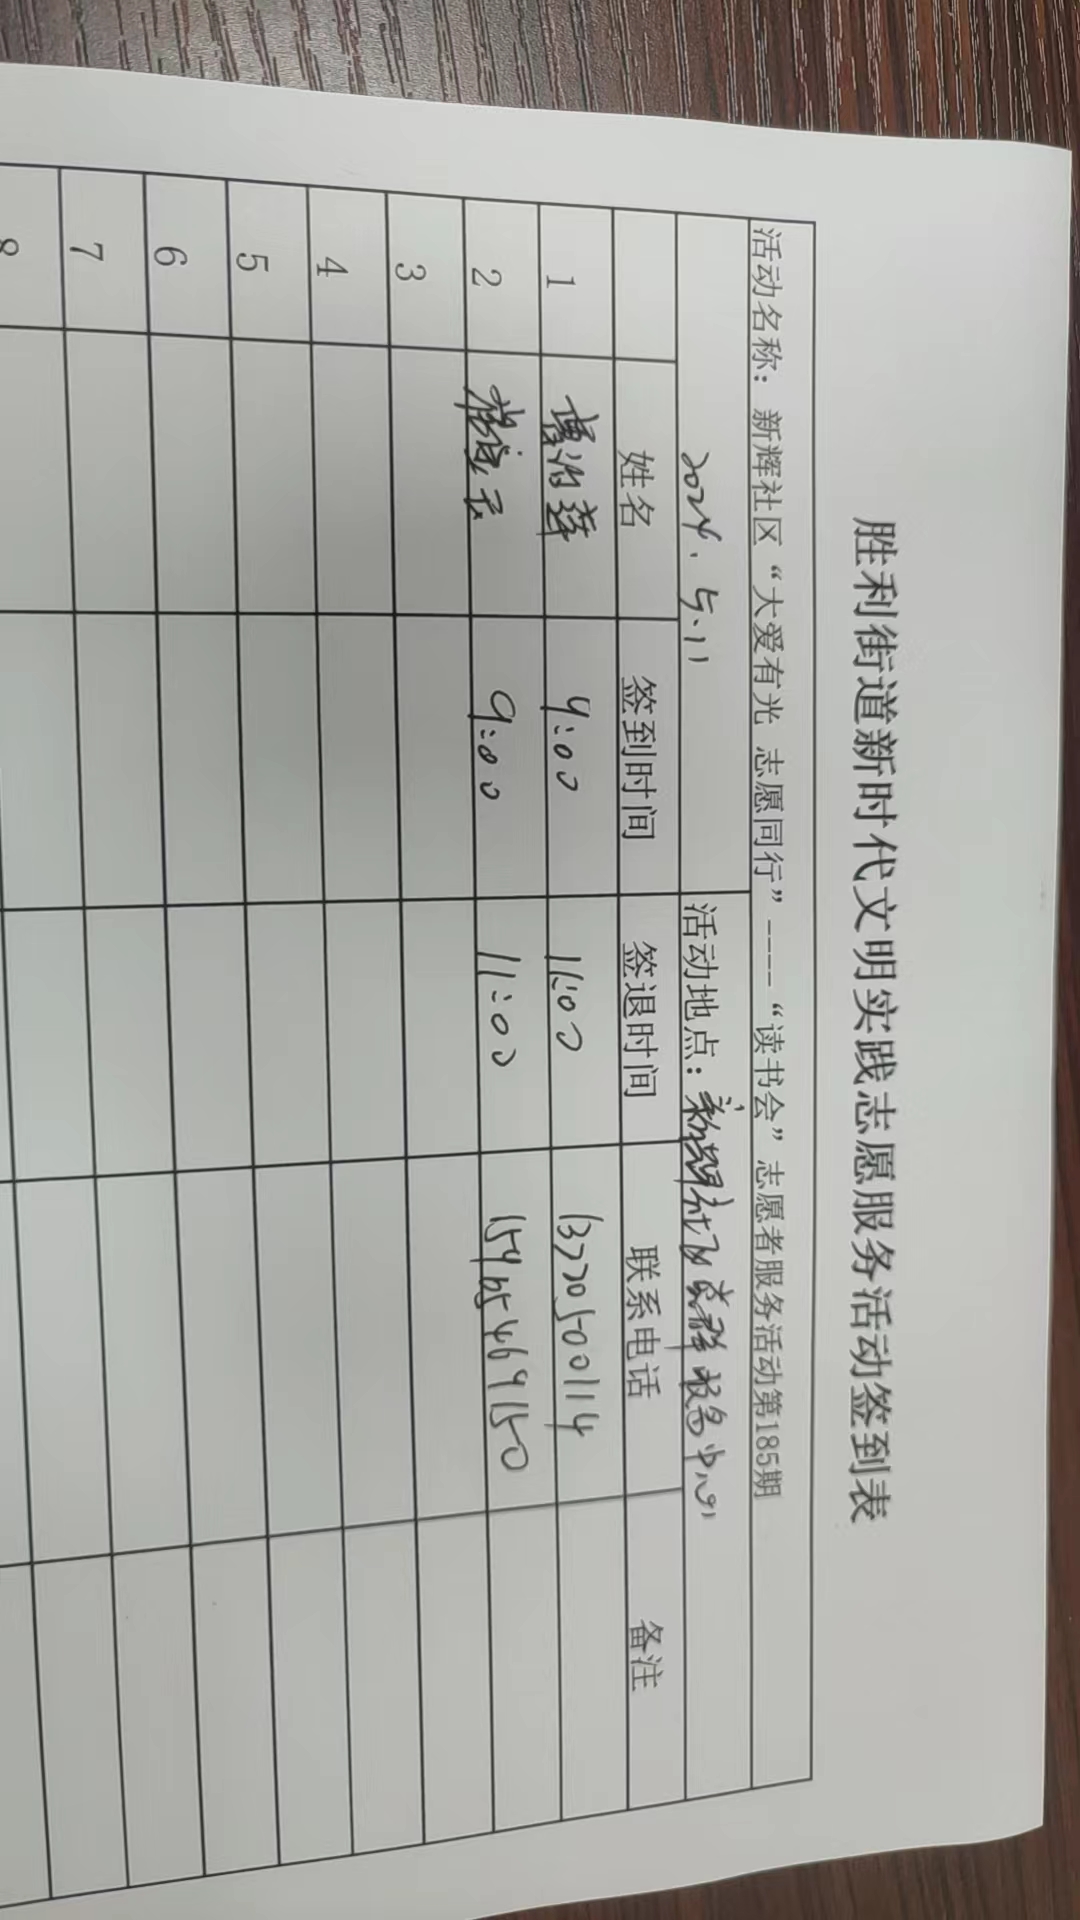 胜利街道新时代文明实践志愿服务活动签到表
活动名称：新辉社区“大爱有光 志愿同行”----“读书会”志愿者服务活动第185期
2024.5.11 活动地点：新辉社区党群服务中心
姓名 签到时间 签退时间 联系电话 备注
1 9:00 11:00 13770500114
2 9:00 11:00
3
4
5
6
7
8